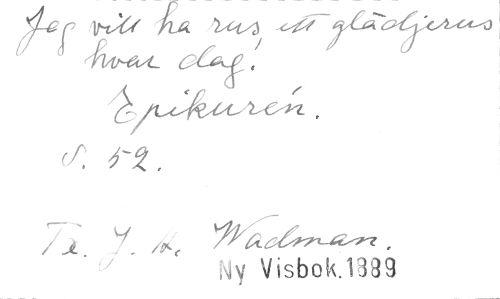 Jag vill ha rus, ett glädjerus
hvar dag!
Epikurén.
S. 52.
Te. J. A. Wadman.
Ny Visbok. 1889